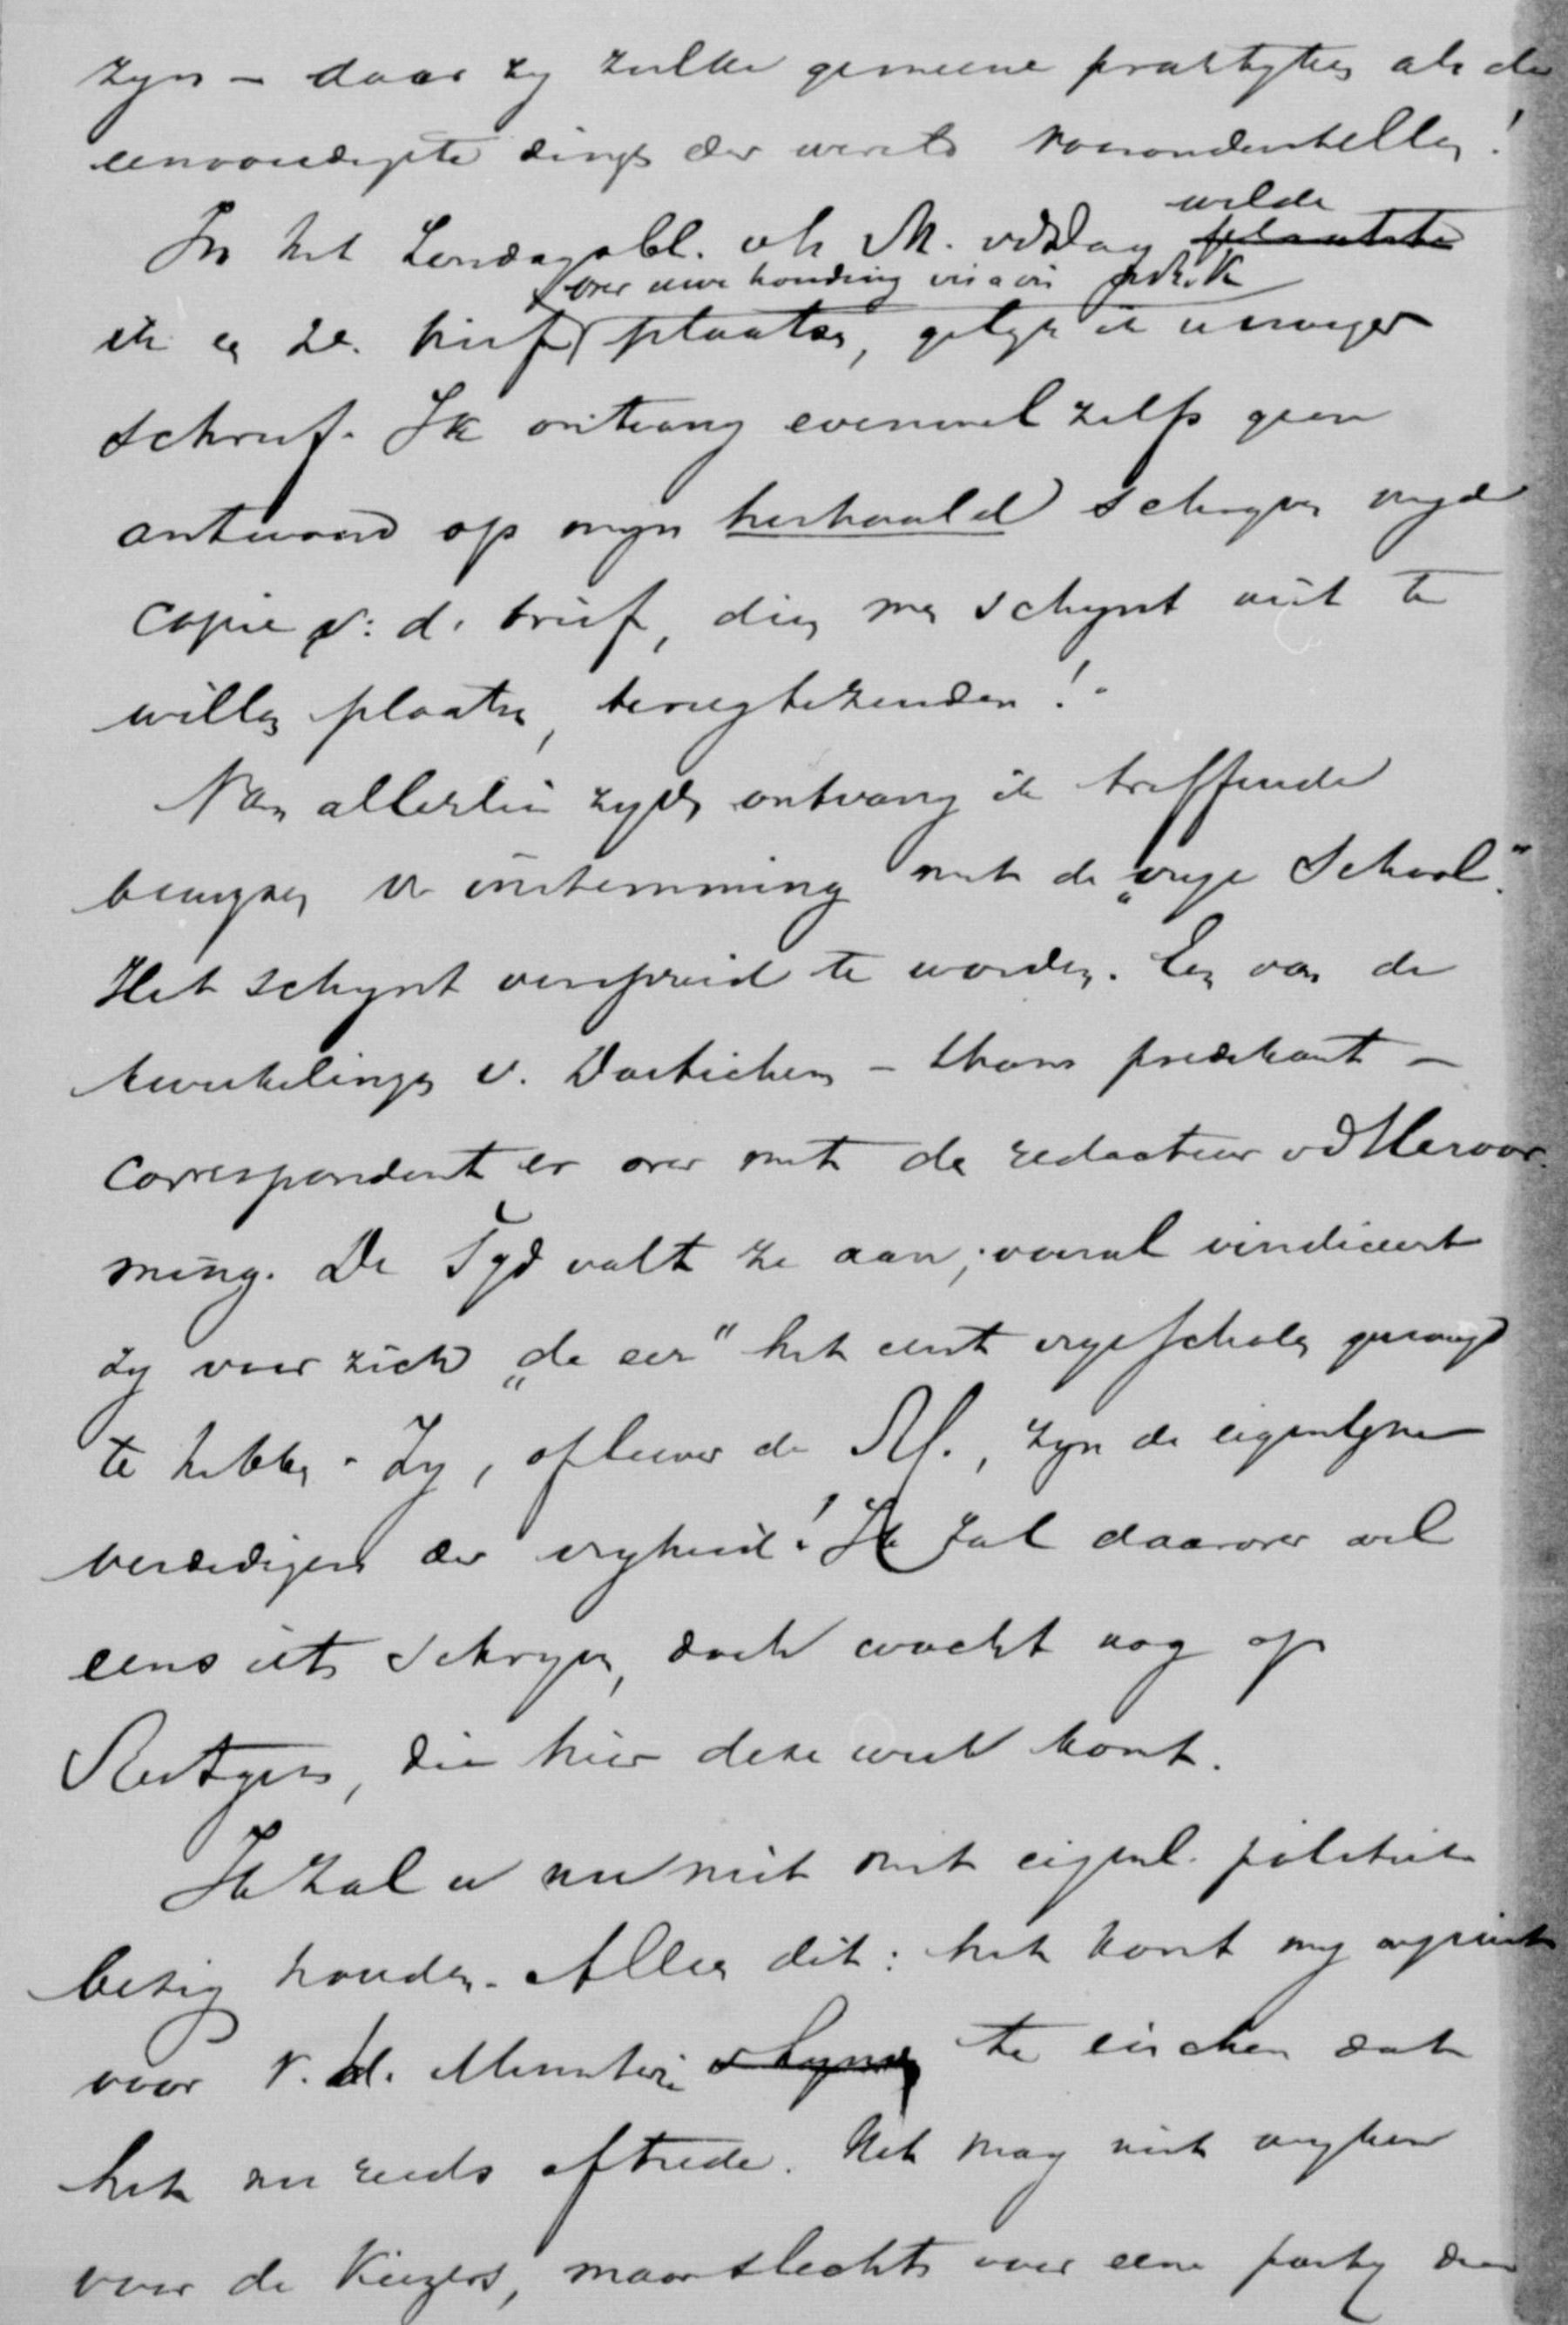 zyn – daar zy zulke gemeene praktyken als de
eenvoudigste dingen der wereld vooronderstellen!
In het Zondagsbl. v h N. vd Dag wilde plaatste
over uwe houding vis a vis
ik en 2e. brief plaatsen, gelyk ik u vroeger
schreef. Ik ontvang evenwel zelfs geen
antwoord op myn herhaald schryven my de
copie v: d. brief, dien men schynt niet te
willen plaatsen, terugtezenden!
Van allerlei zyden ontvang ik treffende
bewyzen v. instemming met de „vrye School."
Het schynt verspreid te worden. Een van de
kweekelingen v. Doetichem – thans predikant –
correspondeert er over met de redacteur vd Hervor-
ming. De Tyd valt ze aan; vooral vindiceert
zy voor zich „de eer" het eerst vrye scholen gevraagd
te hebben. Zy, of liever de Rl., zyn de eigenlyke
verdedigers der vryheid! Ik zal daarover wel
eens iets schryven, doch wacht nog op
Rutgers, die hier deze week komt.
Ik zal u nu niet met eigenl. politiek
bezig houden. Alleen dit: het komt my ongerymd
voor v. d. Ministerie te eischen dat
het nu reeds aftrede. Het mag niet wyken
voor de Kiezers, maar slechts voor eene party der